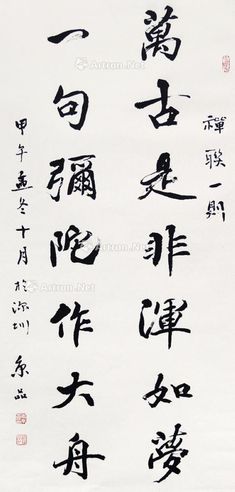 禪聯一則
萬古是非渾如夢
一句彌陀作大舟
甲午孟冬十月於深圳
Artron.Net
Artron.Net
Artron.Net
Artron.Net